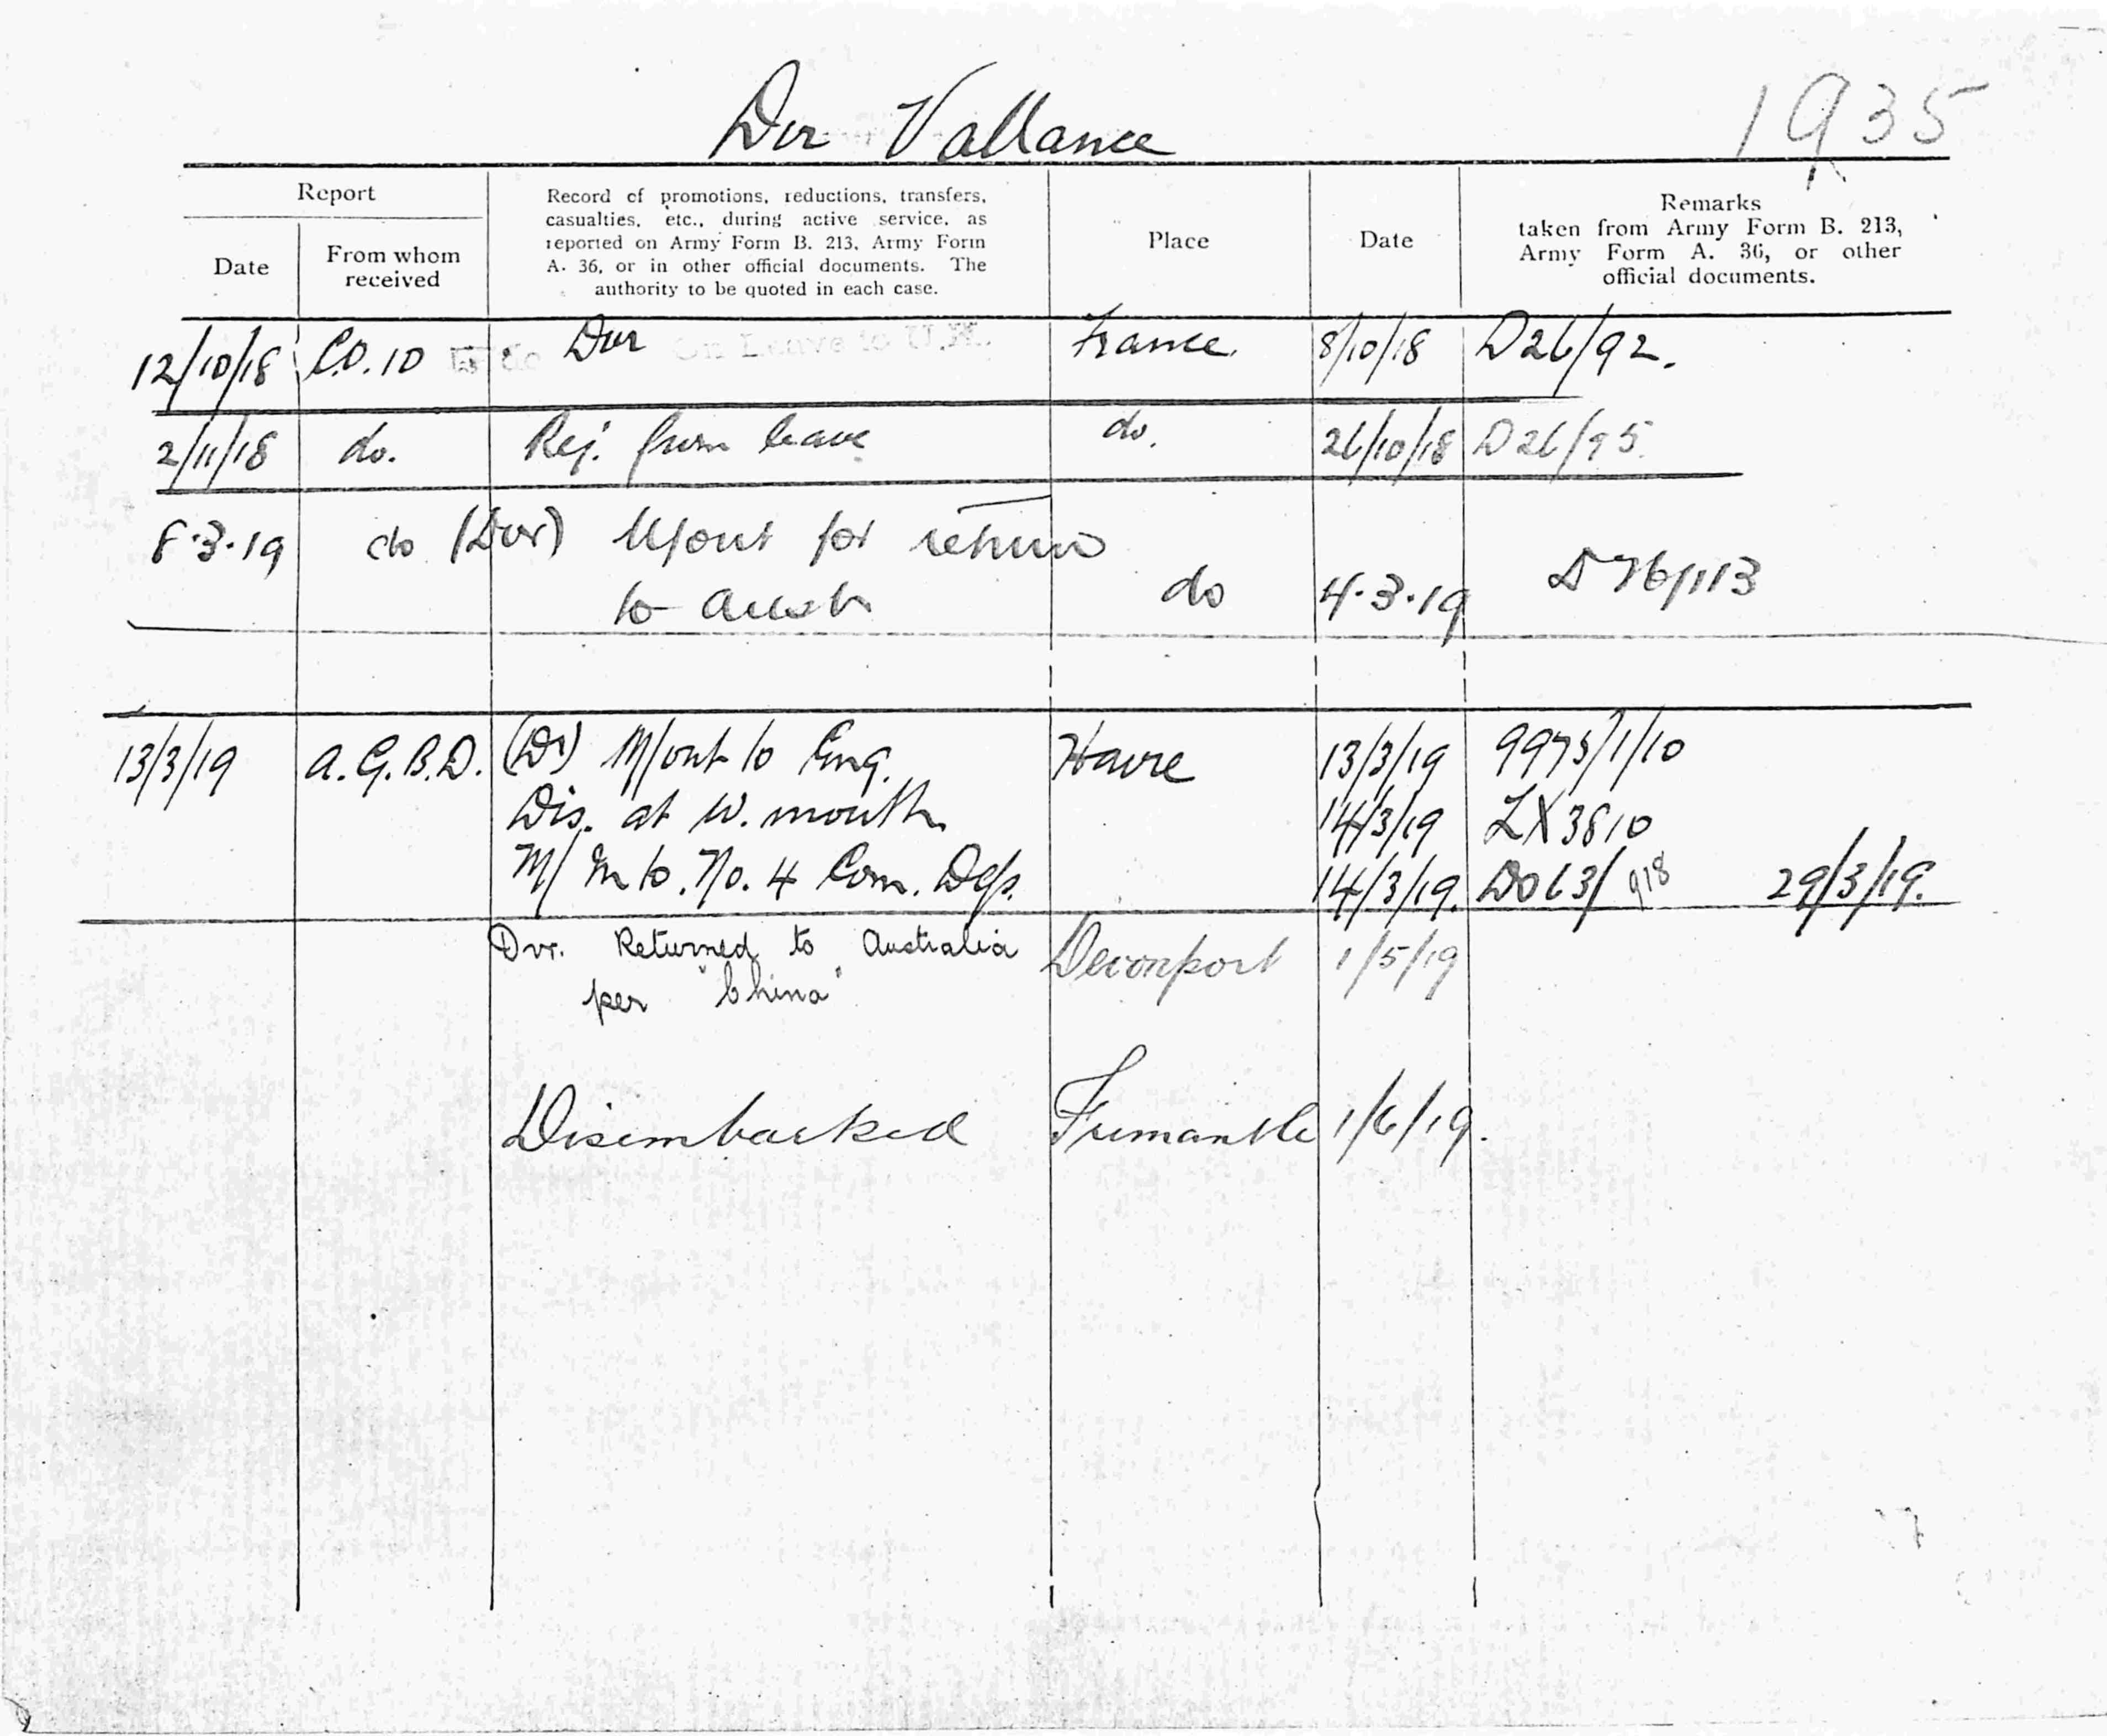 Dvr Vallance
1935
Report
Date
From whom
received
Record of promotions, reductions, transfers,
casualties, etc., during active service, as
reported on Army Form B. 213, Army Form
A. 36, or in other official documents. The
authority to be quoted in each case.
Place
Date
Remarks
taken from Army Form B. 213,
Army Form A. 36, or other
official documents.
12/10/18 C.O. 10 Dvr On Leave to U.K. France. 8/10/18 D26/92.
2/11/18 do. Rej. from leave do. 26/10/18 D26/95.
8.3.19 do (Dvr) M/out for return
to Austr do 4.3.19 D26/113
13/3/19 A.G.B.D. (Dr) M/out to Eng. Havre 13/3/19 9975/1/10
Dis. at W. mouth. 14/3/19 LX3810
M/ In to. No. 4 Com. Dep. 14/3/19. DO63/918 29/3/19.
Dvr. Returned to Australia Devonport 1/5/19
per "China"
Disembarked Fremantle 1/6/19.